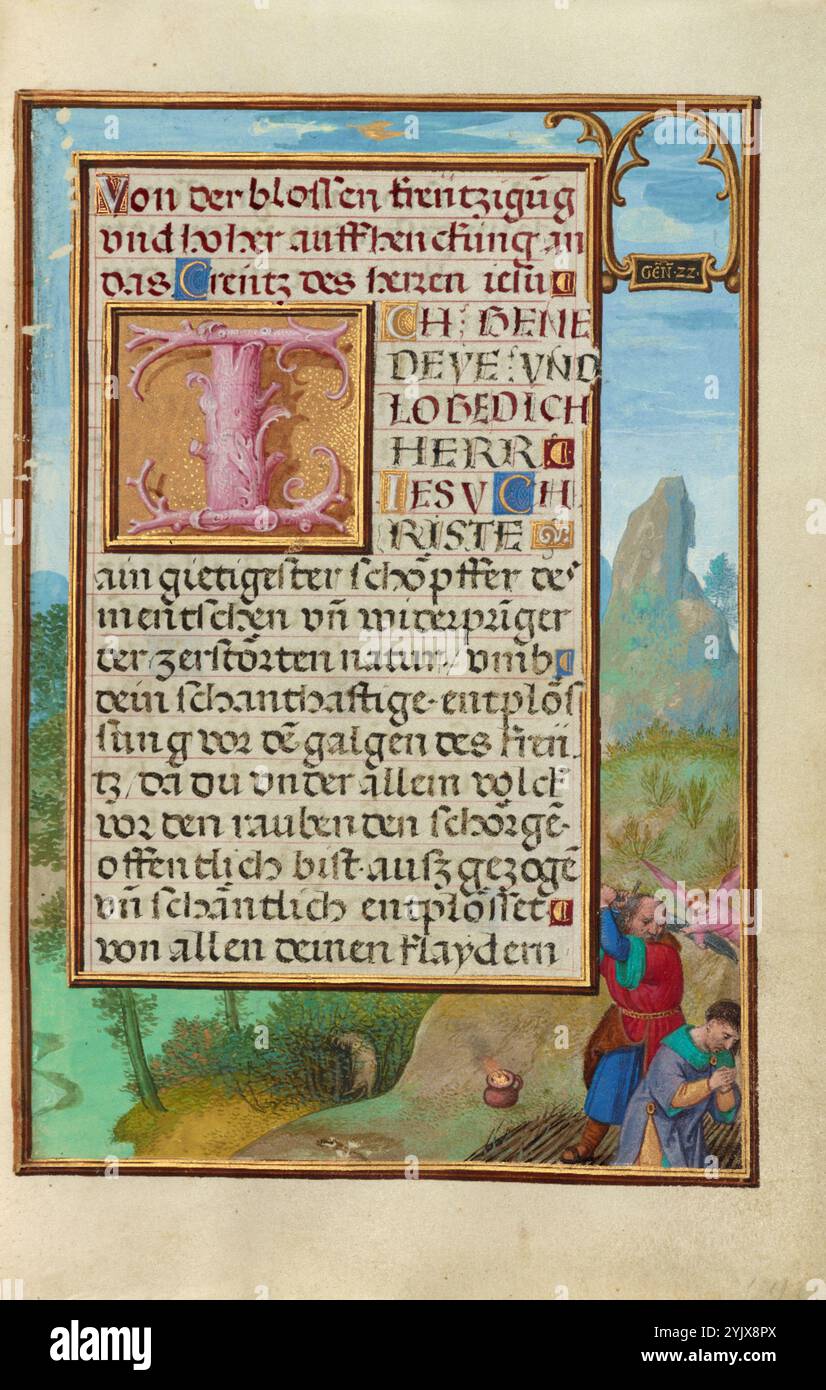 Von der blossen kreützigūg
vnd hoher auffhenckung an
das Creütz des herren iesu
GEÑ·22·
ICH BENE
DEYE VND
LOBE DICH
HERR
IESV CH
RISTE
ain gietigester schöpffer des
mentschen vñ widerprīger
der zerstörten natur/ vmb
dein schanthafftige entplös
sung vor dē galgen des kreü
tz/ da du vnder allem volck
vor den raubenden schörgē
offentlich bist außgezogē
vñ schäntlich entplösset
von allen deinen klaydern
alamy
Image ID: 2YJX8PX
www.alamy.com